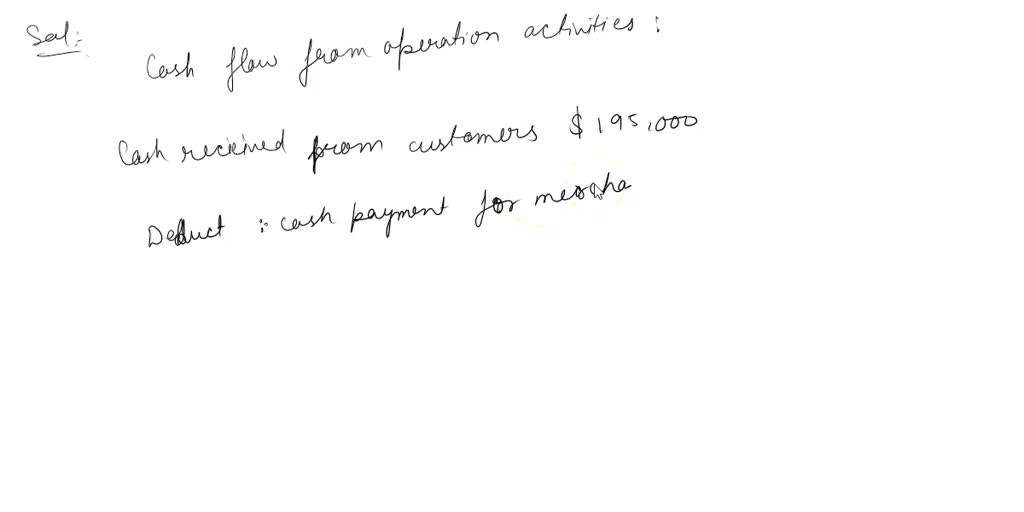 Sol:-
Cash flow from operation activities :
Cash received from customers $195,000
Deduct : cash payment for mercha